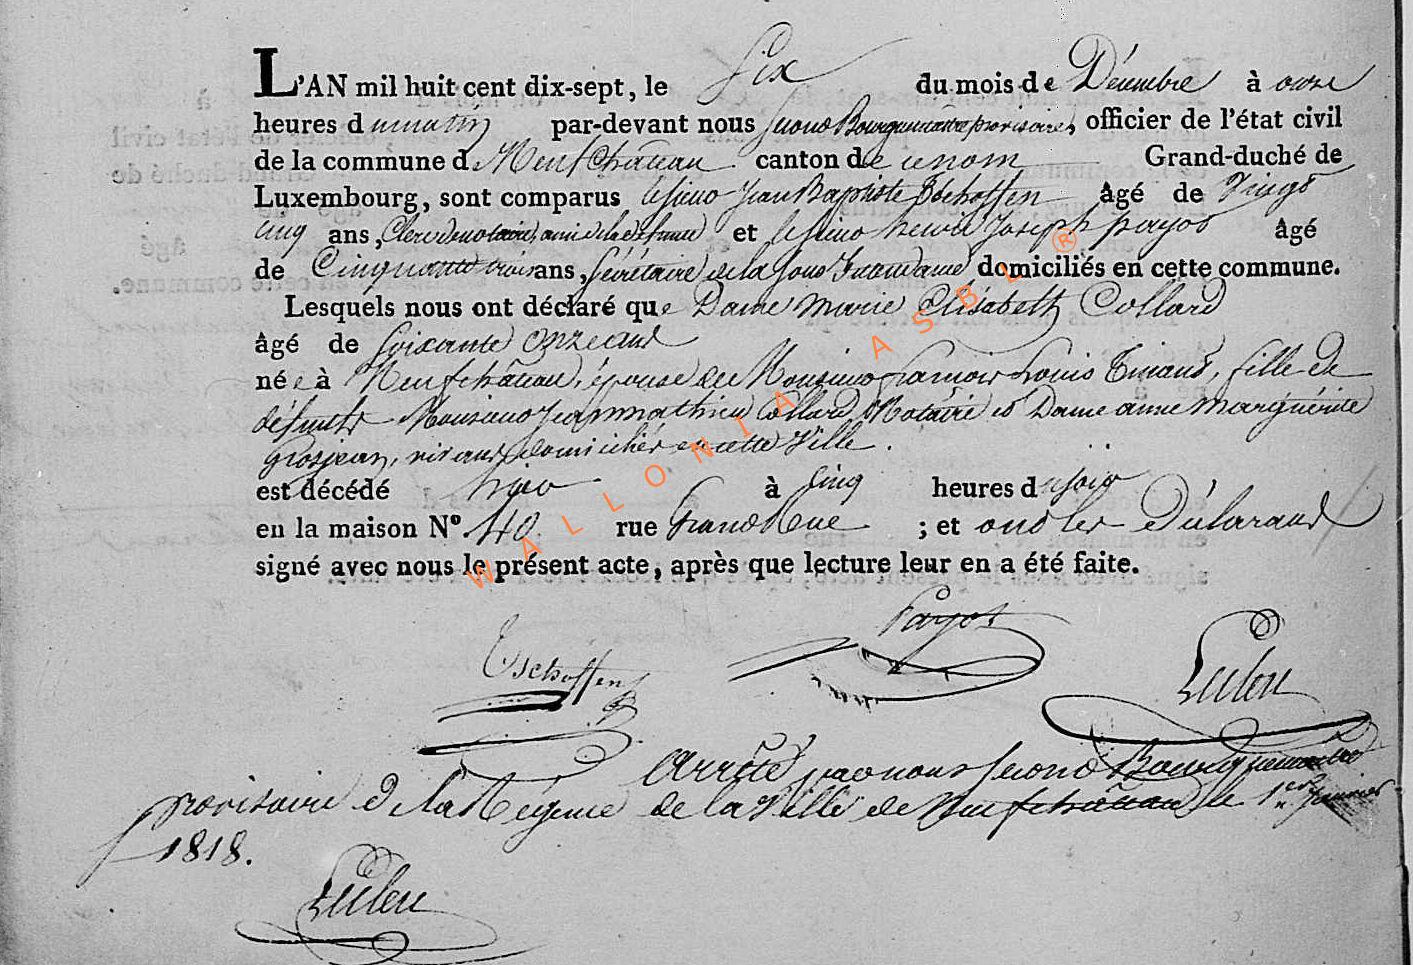 L'AN mil huit cent dix-sept, le Six du mois de Décembre à onze
heures du matin par-devant nous second Bourguemaitre provisoire, officier de l'état civil
de la commune de Neufchâteau canton de ce nom Grand-duché de
Luxembourg, sont comparus le sieur Jean Baptiste Tschoffen âgé de Vingt
cinq ans, Clerc de notaire, ami de la défunte et le sieur Henri Joseph payot âgé
de Cinquante trois ans, Sécrétaire de la Sous Intendance domiciliés en cette commune.
Lesquels nous ont déclaré que Dame Marie Elisabeth Collard
âgé de soixante onze ans
née à Neufchâteau, épouse de Monsieur francois Louis, fille de
défunts Monsieur Jean mathieu Collard Notaire et Dame anne Marguérite
Grosjean, vivans domiciliés en cette Ville.
est décédé hier à cinq heures du soir
en la maison N° 40 rue Grand Rue ; et ont les Déclarans
signé avec nous le présent acte, après que lecture leur en a été faite.
Tschoffen Payot
Arrêté par nous second Bourguemaitre
provisoire de la Régence de la Ville de Neufchâteau le 1er Janvier
1818.
WALLONIA ASBL ®